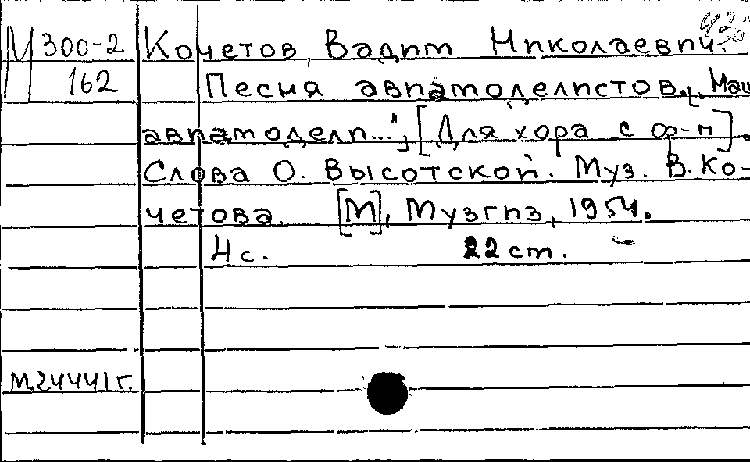 М 300-2 Кочетов Вадим Николаевич.
162 Песня авиамоделистов. „Маш
авиамодели...", [Для хора с ф-п].
Слова О. Высотской. Муз. В. Ко-
четова. [М], Музгиз, 1954.
4 с. 22 ст.
М.24441г.